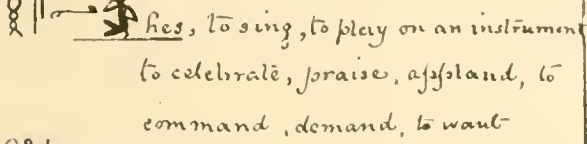 hes, to sing, to play on an instrument
to celebrate, praise, applaud, to
command, demand, to want